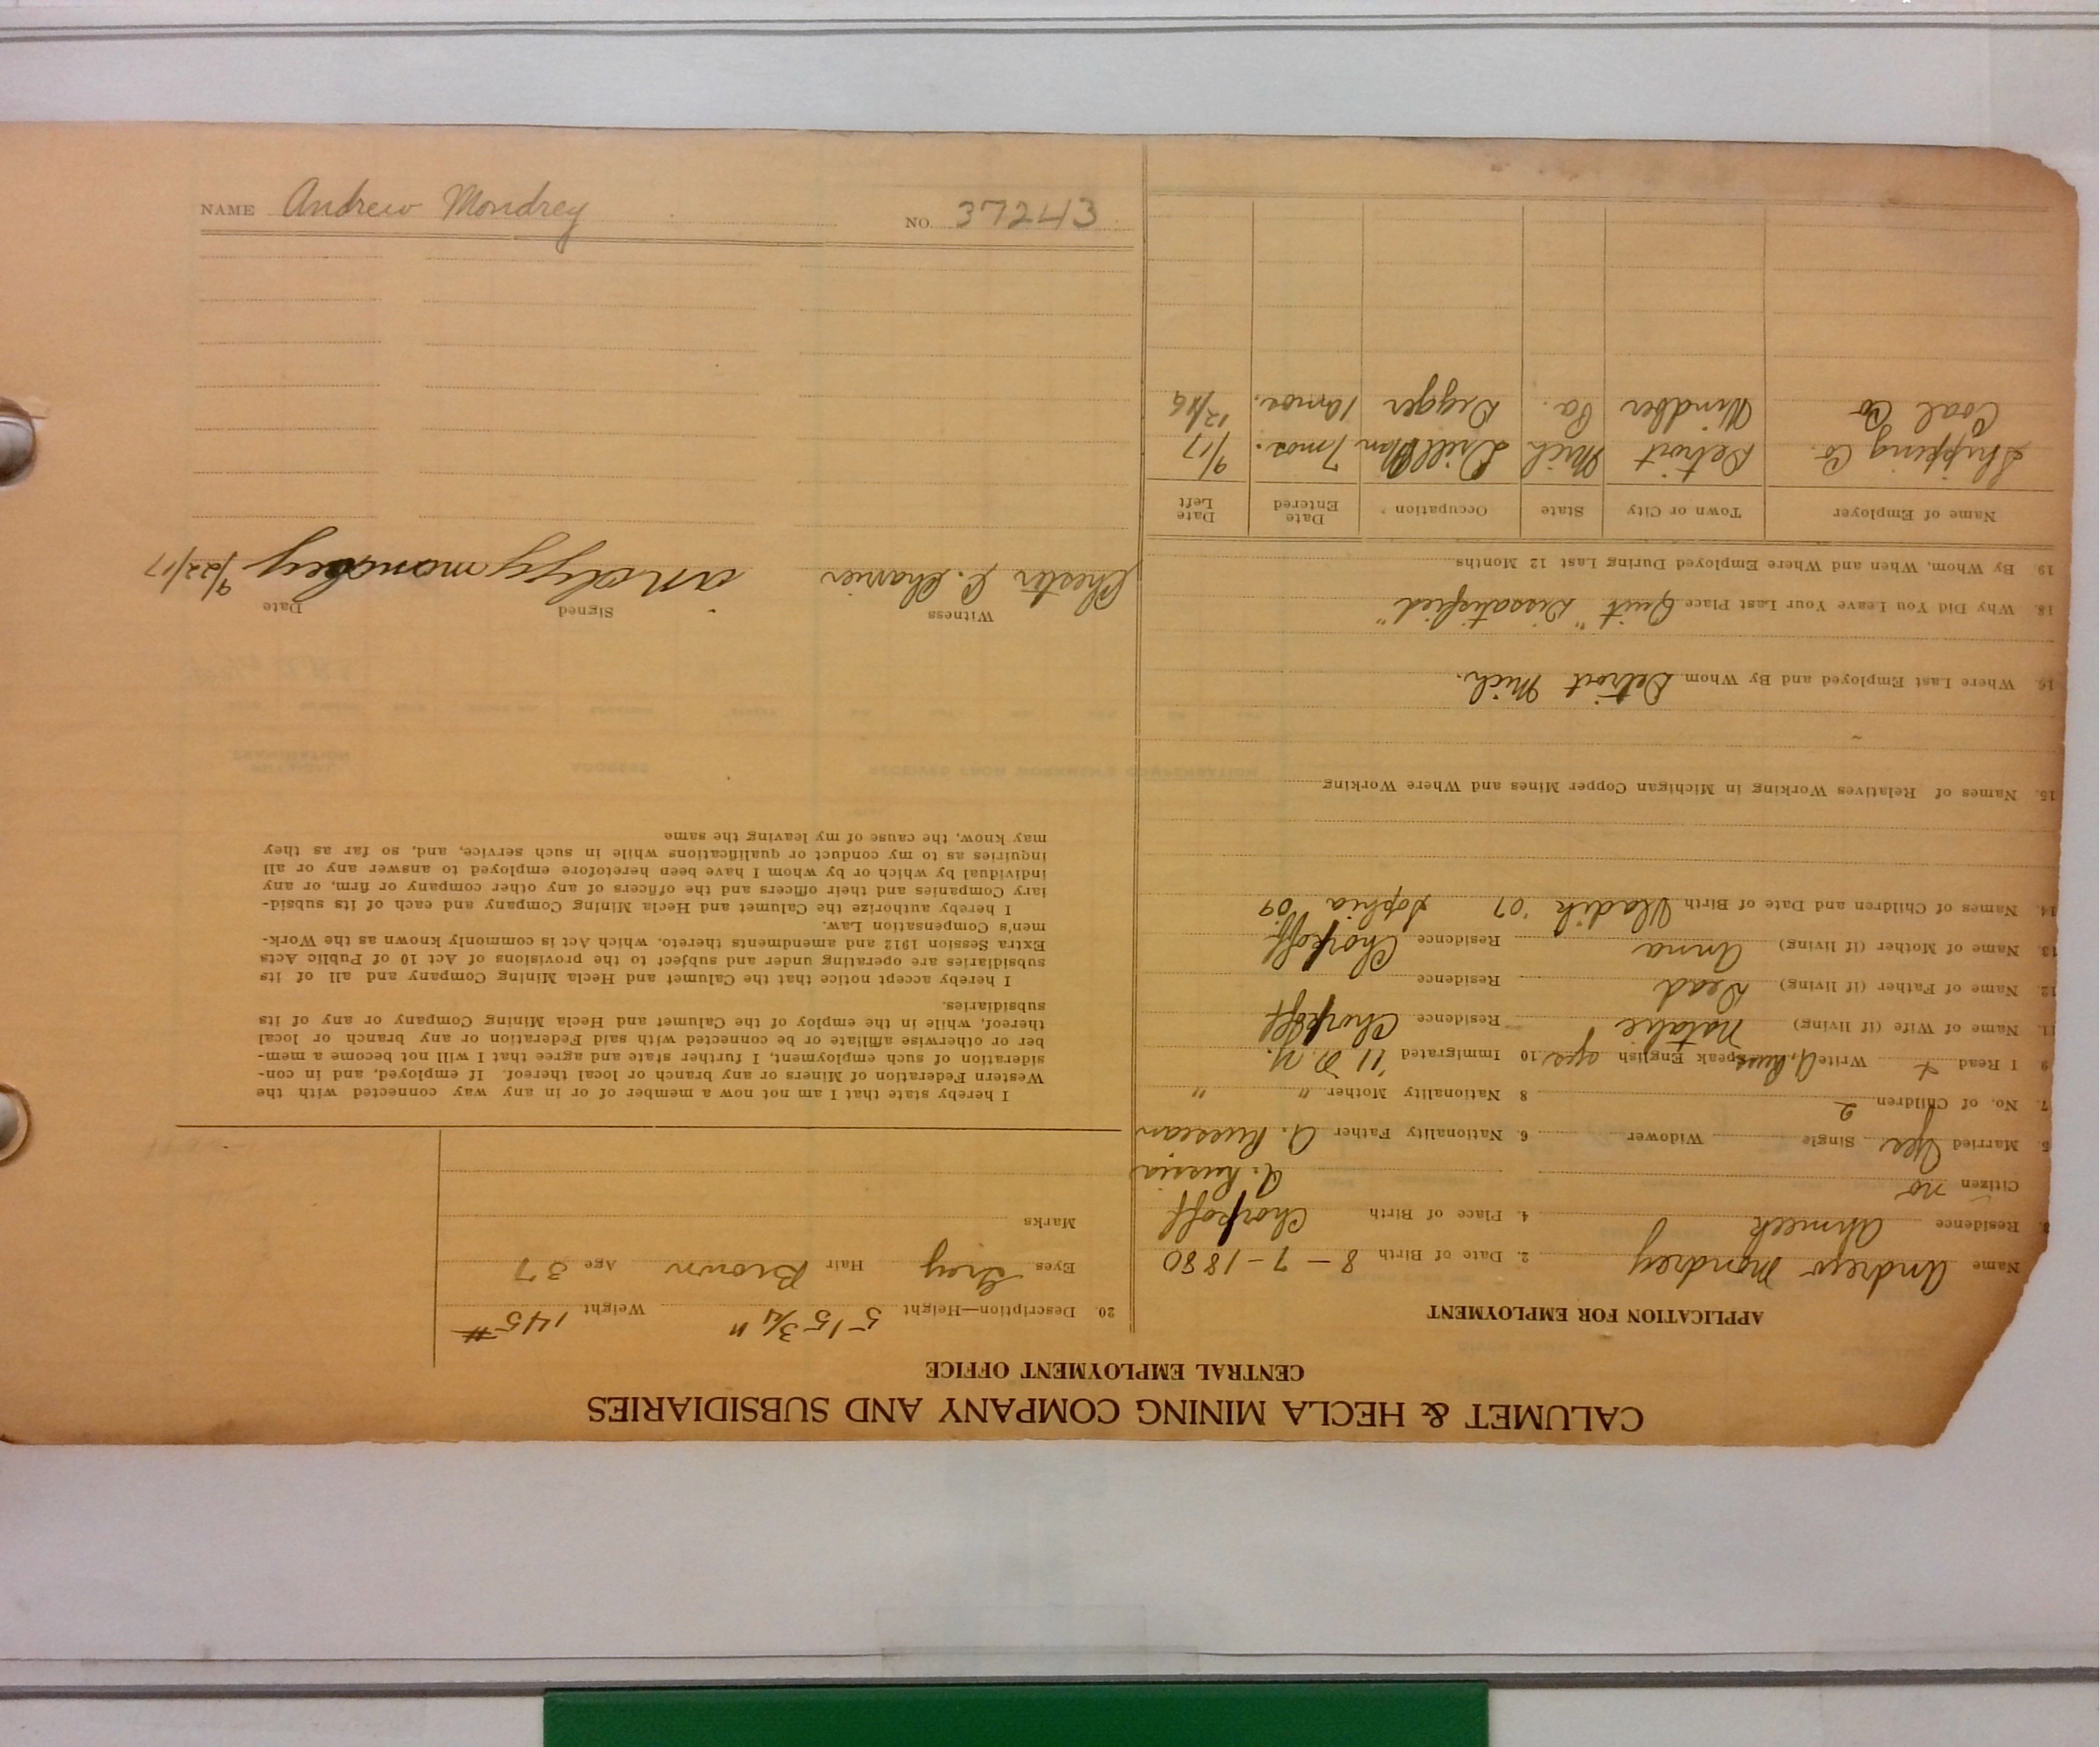 CALUMET & HECLA MINING COMPANY AND SUBSIDIARIES
CENTRAL EMPLOYMENT OFFICE
APPLICATION FOR EMPLOYMENT
Name Andrew Mondrey 2. Date of Birth 8-7-1880
3. Residence Ahmeek 4. Place of Birth Chorkoff
Citizen no A. Russia
5. Married Yes Single Widower 6. Nationality Father A. Russian
7. No. of Children 2 8 Nationality Mother " "
9 I Read + Write A. Russ Speak English yes 10 Immigrated '11 N.Y.
11. Name of Wife (if living) Natalie Residence Chorkoff
12. Name of Father (if living) Dead Residence
13. Name of Mother (if living) Anna Residence Chorkoff
14. Names of Children and Date of Birth Vladik '07 Sophia '09
15. Names of Relatives Working in Michigan Copper Mines and Where Working
16. Where Last Employed and By Whom Detroit Mich.
18. Why Did You Leave Your Last Place Quit "Dissatisfied"
19. By Whom, When and Where Employed During Last 12 Months
Name of Employer Town or City State Occupation Date Entered Date Left
Shipping Co. Detroit Mich Drill Man 7 mos. 9/17
Coal Co Windber Pa. Digger 10 mos. 12/16
20. Description—Height 5'5 3/4" Weight 145#
Eyes Grey Hair Brown Age 37
Marks
I hereby state that I am not now a member of or in any way connected with the
Western Federation of Miners or any branch or local thereof. If employed, and in con-
sideration of such employment, I further state and agree that I will not become a mem-
ber or otherwise affiliate or be connected with said Federation or any branch or local
thereof, while in the employ of the Calumet and Hecla Mining Company or any of its
subsidiaries.
I hereby accept notice that the Calumet and Hecla Mining Company and all of its
subsidiaries are operating under and subject to the provisions of Act 10 of Public Acts
Extra Session 1912 and amendments thereto, which Act is commonly known as the Work-
men's Compensation Law.
I hereby authorize the Calumet and Hecla Mining Company and each of its subsid-
iary Companies and their officers and the officers of any other company or firm, or any
individual by which or by whom I have been heretofore employed to answer any or all
inquiries as to my conduct or qualifications while in such service, and, so far as they
may know, the cause of my leaving the same
Witness Signed Date
Chester C. 9/22/17
NAME Andrew Mondrey NO. 37243